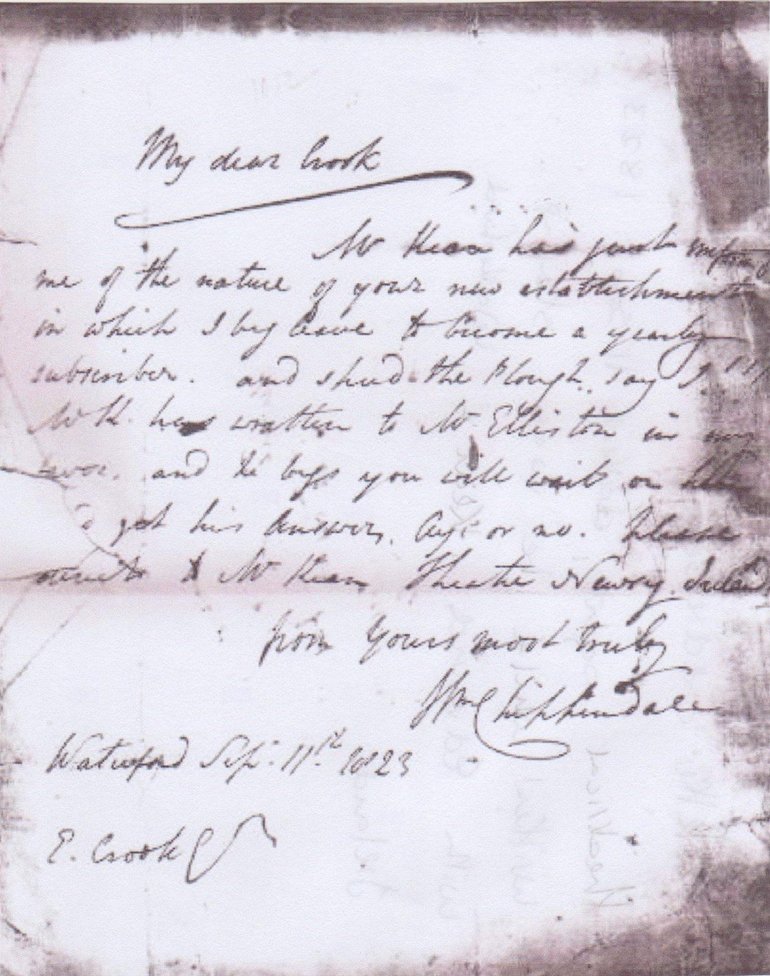 My dear Crook
Mr Kean has just inform'd
me of the nature of your new establishment
in which I beg leave to become a yearly
subscriber. and speed the Plough, say I.
Mr K. has written to Mr Elliston in my
and he begs you will wait on
get his Answer, Aye or no. Please
to Mr Kean Theatre Newry. Ireland
from Yours most truly
Wm Chippendale
Waterford Sepr. 11th. 1823
E. Crook